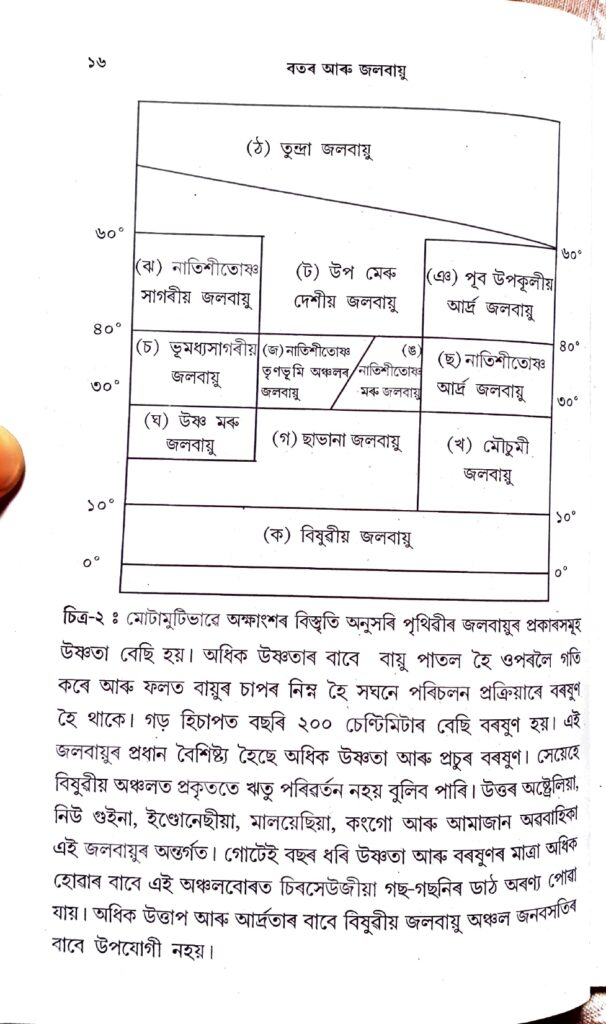 ১৬
বতৰ আৰু জলবায়ু
(ঠ) তুন্দ্ৰা জলবায়ু
৬০°
৬০°
(ঝ) নাতিশীতোষ্ণ
সাগৰীয় জলবায়ু
(ট) উপ মেৰু
দেশীয় জলবায়ু
(ঞ) পূব উপকূলীয়
আৰ্দ্ৰ জলবায়ু
৪০°
৪০°
(চ) ভূমধ্যসাগৰীয়
জলবায়ু
(জ) নাতিশীতোষ্ণ
তৃণভূমি অঞ্চলৰ
জলবায়ু
(ঙ)
নাতিশীতোষ্ণ
মৰু জলবায়ু
(ছ) নাতিশীতোষ্ণ
আৰ্দ্ৰ জলবায়ু
৩০°
৩০°
(ঘ) উষ্ণ মৰু
জলবায়ু
(গ) ছাভানা জলবায়ু
(খ) মৌচুমী
জলবায়ু
১০°
১০°
(ক) বিষুৱীয় জলবায়ু
০°
০°
চিত্ৰ-২ : মোটামুটিভাৱে অক্ষাংশৰ বিস্তৃতি অনুসৰি পৃথিৱীৰ জলবায়ুৰ প্ৰকাৰসমূহ
উষ্ণতা বেছি হয়। অধিক উষ্ণতাৰ বাবে বায়ু পাতল হৈ ওপৰলৈ গতি
কৰে আৰু ফলত বায়ুৰ চাপৰ নিম্ন হৈ সঘনে পৰিচলন প্ৰক্ৰিয়াৰে বৰষুণ
হৈ থাকে। গড় হিচাপত বছৰি ২০০ চেণ্টিমিটাৰ বেছি বৰষুণ হয়। এই
জলবায়ুৰ প্ৰধান বৈশিষ্ট্য হৈছে অধিক উষ্ণতা আৰু প্ৰচুৰ বৰষুণ। সেয়েহে
বিষুৱীয় অঞ্চলত প্ৰকৃততে ঋতু পৰিৱৰ্তন নহয় বুলিব পাৰি। উত্তৰ অষ্ট্ৰেলিয়া,
নিউ গুইনা, ইণ্ডোনেছীয়া, মালয়েছিয়া, কংগো আৰু আমাজান অৱবাহিকা
এই জলবায়ুৰ অন্তৰ্গত। গোটেই বছৰ ধৰি উষ্ণতা আৰু বৰষুণৰ মাত্ৰা অধিক
হোৱাৰ বাবে এই অঞ্চলবোৰত চিৰসেউজীয়া গছ-গছনিৰ ডাঠ অৰণ্য পোৱা
যায়। অধিক উত্তাপ আৰু আৰ্দ্ৰতাৰ বাবে বিষুৱীয় জলবায়ু অঞ্চল জনবসতিৰ
বাবে উপযোগী নহয়।